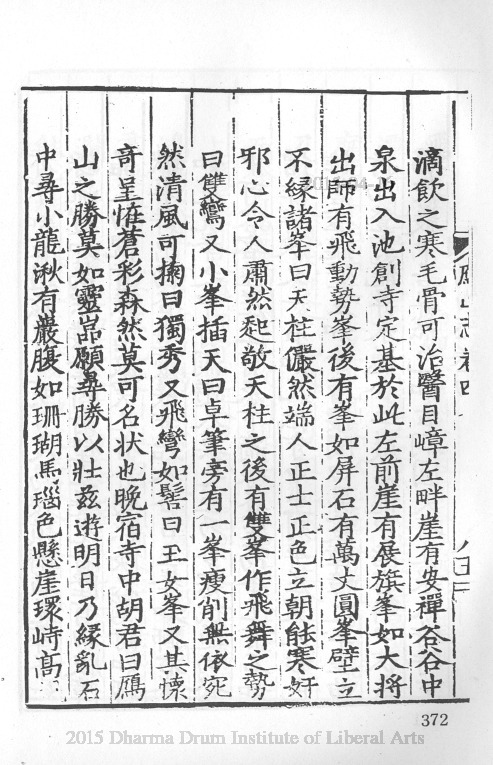 滴飲之寒毛骨可治醫目嶂左畔崖有安禪谷谷中
泉出入池創寺定基於此左前崖有展旗峯如大將
出師有飛動勢峯後有峯如屏石有萬丈圓峯壁立
不緣諸峯曰天柱儼然端人正士正色立朝能寒奸
邪心令人肅然起敬天柱之後有雙峯作飛舞之勢
曰雙鸞又小峯插天曰卓筆旁有一峯瘦削無依宛
然清風可掬曰獨秀又飛彎如髻曰玉女峯又其懷
奇呈恠蒼彩森然莫可名状也晚宿寺中胡君曰鴈
山之勝莫如靈岩願尋勝以壯茲遊明日乃緣亂石
中尋小龍湫有巖腹如珊瑚馬瑙色懸崖環峙高
山志卷四
372
2015 Dharma Drum Institute of Liberal Arts